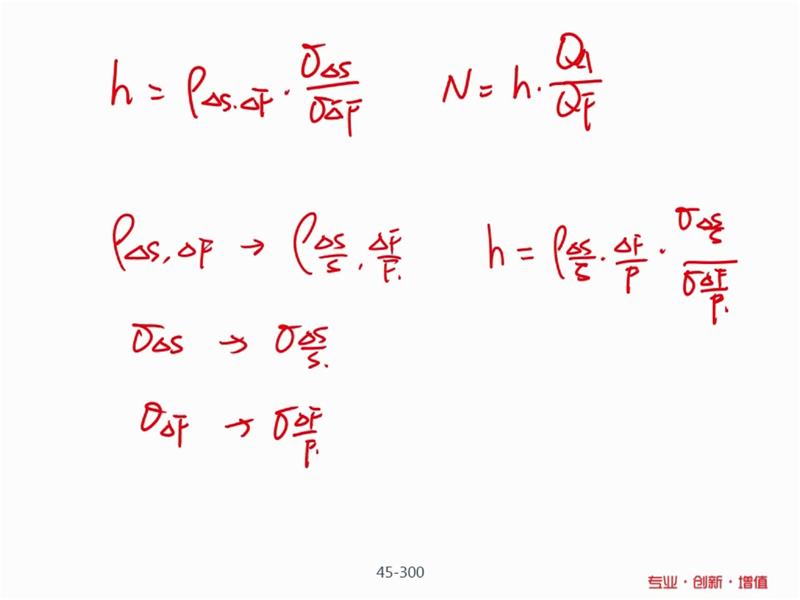 h = ρ_{ΔS.ΔF} · σ_{ΔS}/σ_{ΔF}    N = h · Q_A/Q_F
ρ_{ΔS,ΔF} → ρ_{ΔS/S, ΔF/F.}    h = ρ_{ΔS/S · ΔF/P} · σ_{ΔS/S}/σ_{ΔF/P.}
σ_{ΔS} → σ_{ΔS/S.}
σ_{ΔF} → σ_{ΔF/P.}
45-300
专业·创新·增值